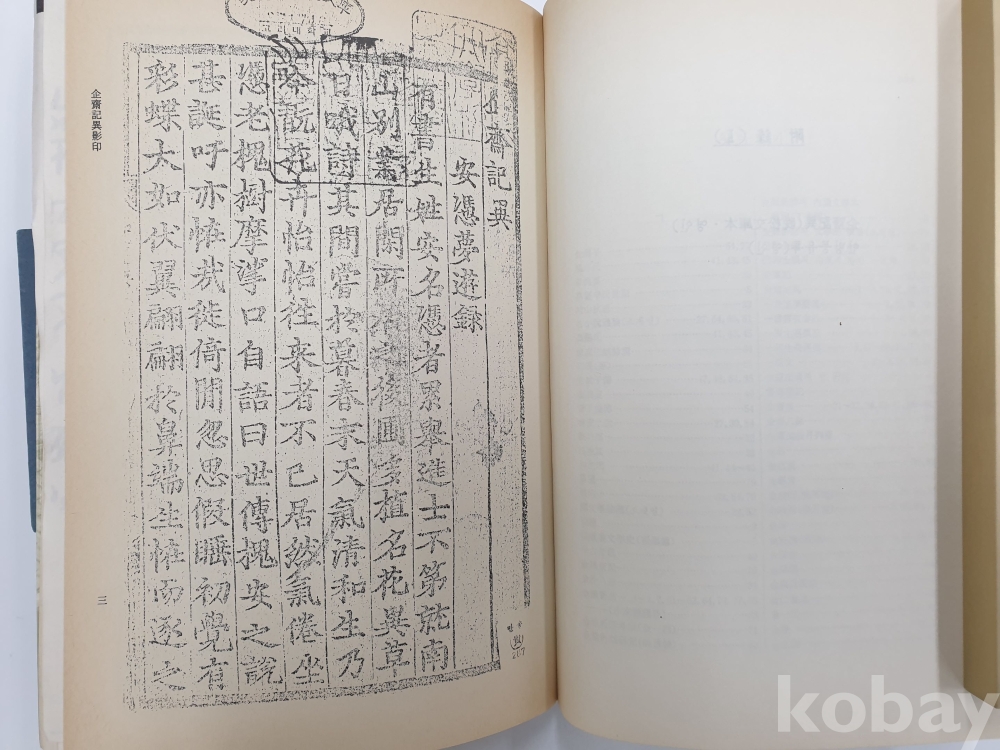 企齋記異
安憑夢遊錄
有書生姓安名憑者累舉進士不第就南
山別業居閑所居之後圃多植名花異草
日哦詩其間嘗於暮春末天氣清和生乃
吟翫花卉怡怡往来者不已居然氣倦坐
憑老槐樹摩挲口自語曰世傳槐安之說
甚誕吁亦恠哉徙倚閒忽思假睡初覺有
彩蝶大如伏翼翩翩於鼻端生恠而逐之
企齋記異影印
三
kobay